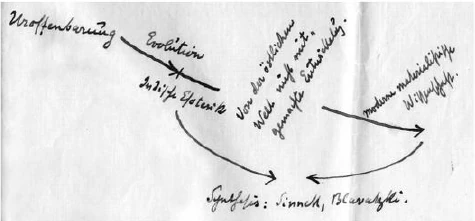 Uroffenbarung
Evolution
Indische Esoterik
Von der östlichen
Welt nicht mit-
gemachte Entwickelg.
moderne materialistische
Wissenschaft.
Synthesis: Sinnet, Blavatzki.